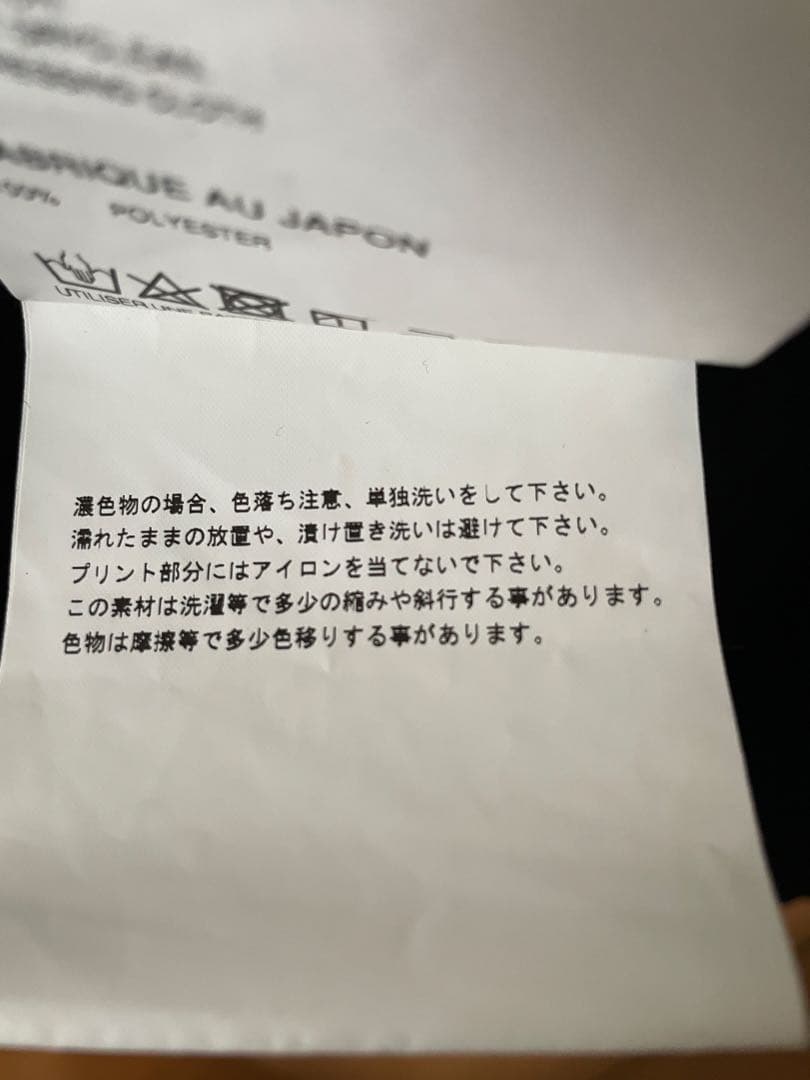 PRESSING CLOTH
FABRIQUE AU JAPON
100% POLYESTER
UTILISER UNE
濃色物の場合、色落ち注意、単独洗いをして下さい。
濡れたままの放置や、漬け置き洗いは避けて下さい。
プリント部分にはアイロンを当てないで下さい。
この素材は洗濯等で多少の縮みや斜行する事があります。
色物は摩擦等で多少色移りする事があります。